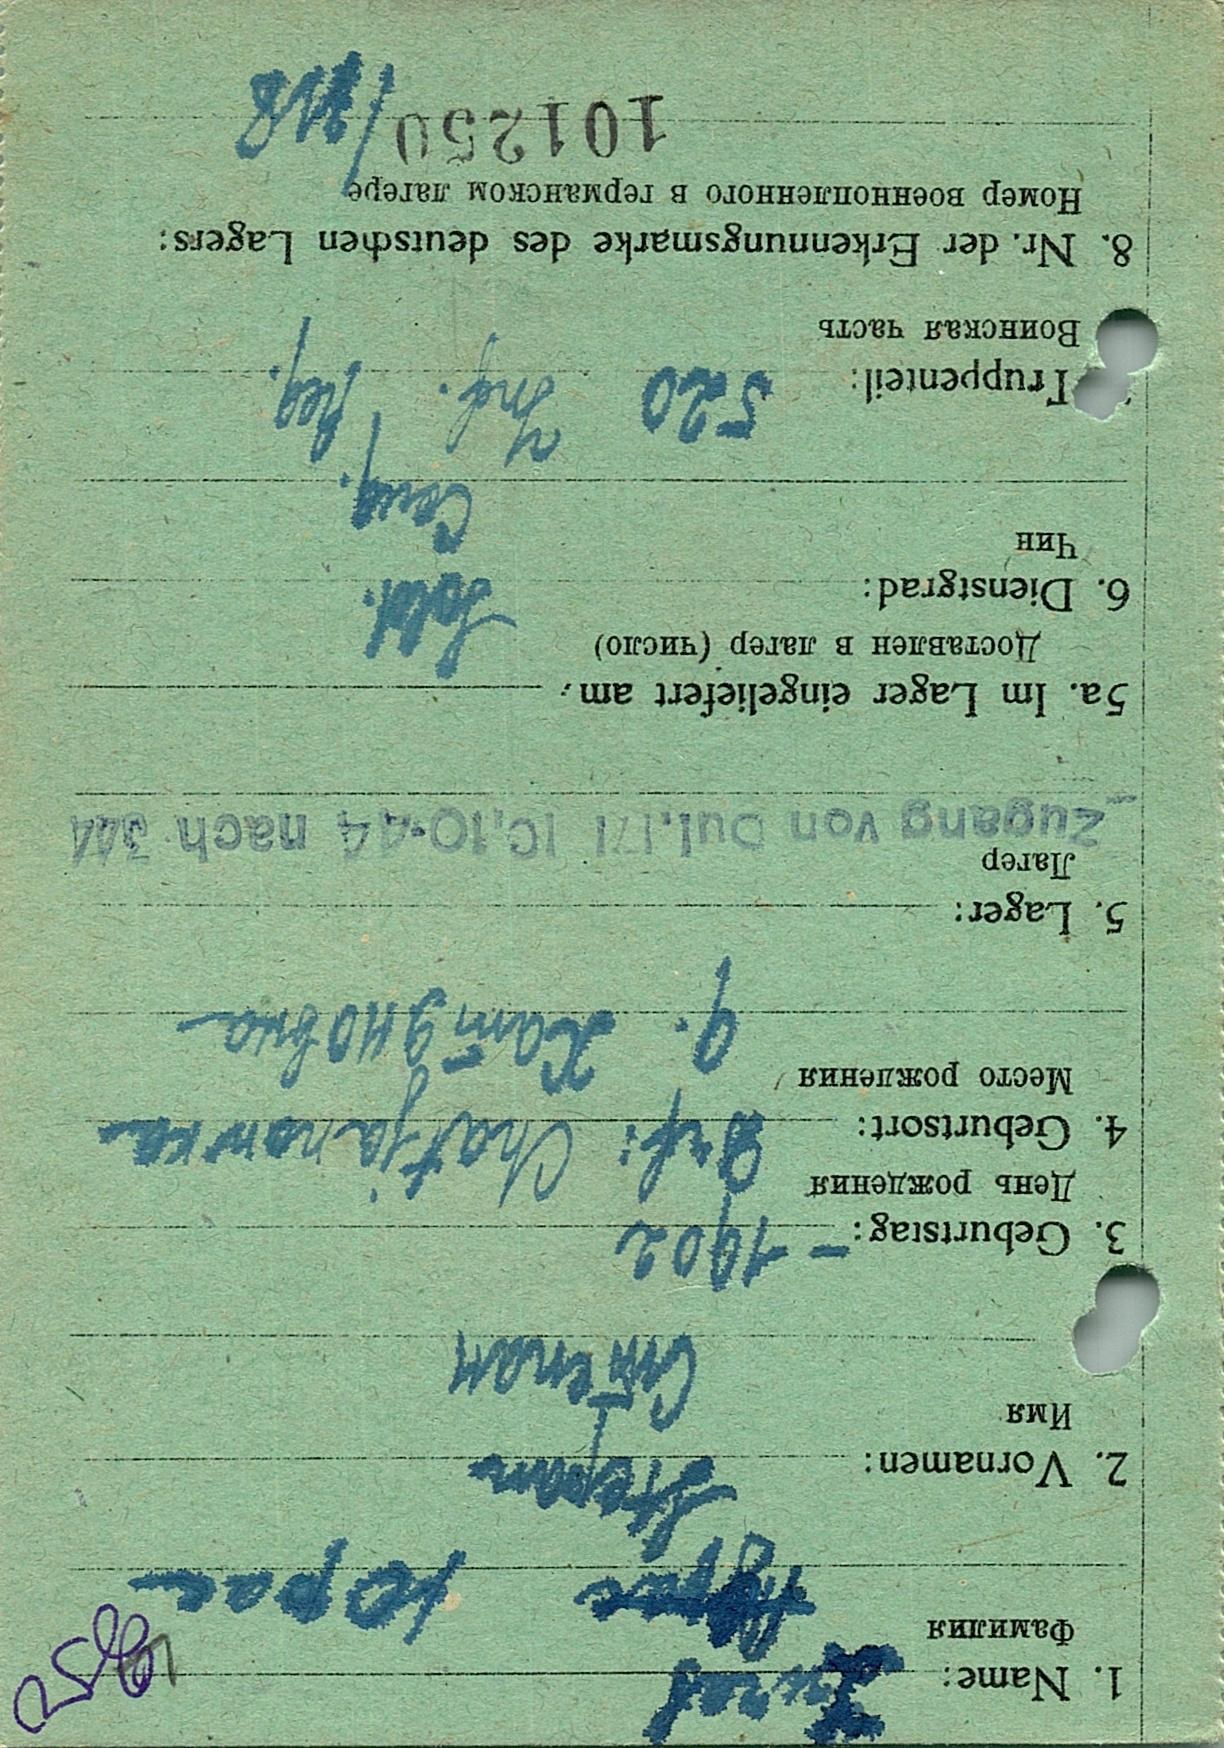 1. Name:
Фамилия
Юрас
2. Vornamen: Stepan
Имя
Степан
3. Geburtstag: – 1902
День рождения
4. Geburtsort: Drf: Chatjanowka
Место рождения
д. Хатяновка
5. Lager:
Лагер
Zugang von Dul.171 10.10.44 nach 344
5a. Im Lager eingeliefert am:
Доставлен в лагер (число)
6. Dienstgrad: Sold.
Чин
Truppenteil: 520 Inf. Reg.
Воинская часть
8. Nr. der Erkennungsmarke des deutschen Lagers:
Номер военнопленного в германском лагере
101250/